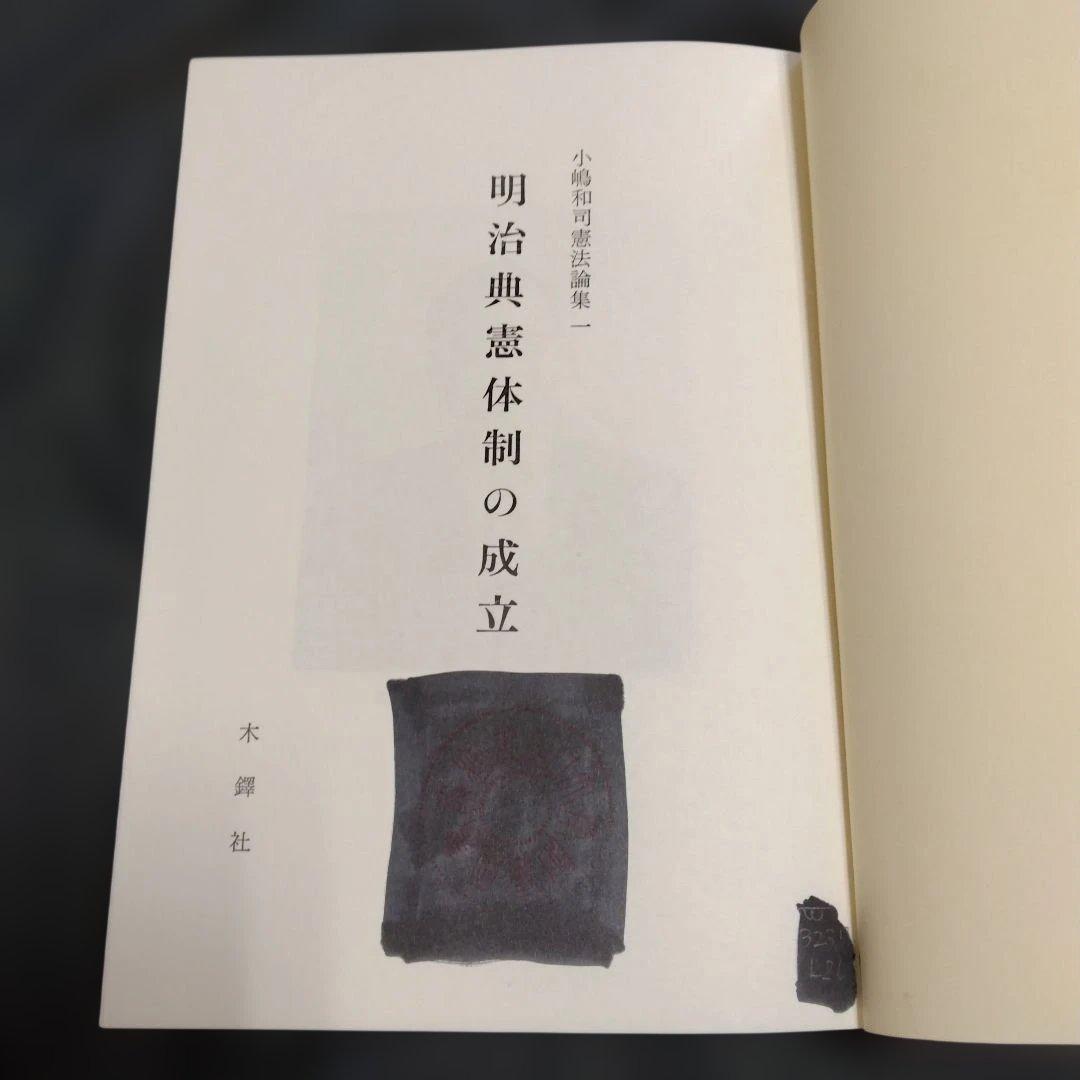 小嶋和司憲法論集一
明治典憲体制の成立
木鐸社